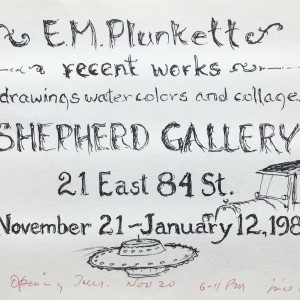 E.M. Plunkett
recent works
drawings watercolors and collage
SHEPHERD GALLERY
21 East 84 St.
November 21-January 12, 198
Opening Tues. Nov 20 6-11 PM